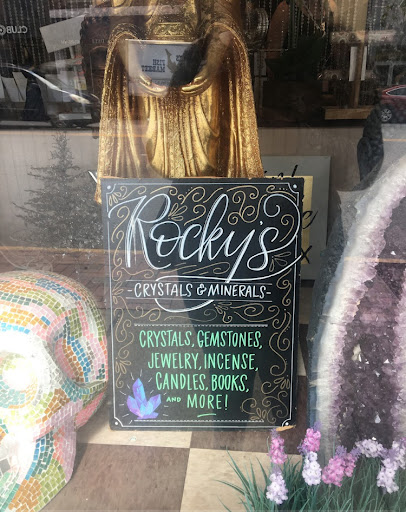 Rocky's
-CRYSTALS & MINERALS-
CRYSTALS, GEMSTONES,
JEWELRY, INCENSE,
CANDLES, BOOKS,
AND MORE!